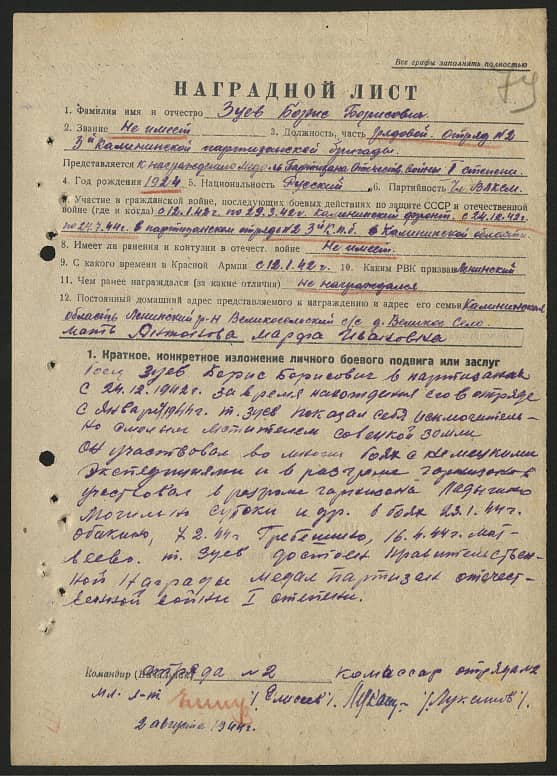 Все графы заполнять полностью
74
НАГРАДНОЙ ЛИСТ
1. Фамилия имя и отчество Зуев Борис Борисович
2. Звание Не имеет 3. Должность, часть Рядовой. Отряд №2
3й Калининской партизанской бригады.
Представляется к награждению Медаль Партизана Отечеств. войны I степени.
4. Год рождения 1924 5. Национальность Русский 6. Партийность Чл. ВЛКСМ.
7. Участие в гражданской войне, последующих боевых действиях по защите СССР и отечественной
войне (где и когда) с 12.1.42г. по 29.3.42г. Калининский фронт. с 24.12.42г.
по 24.7.44г. в партизанском отряде №2 3й К.П.б. в Калининской области.
8. Имеет ли ранения и контузии в отечест. войне Не имеет.
9. С какого времени в Красной Армии с 12.1.42г. 10. Каким РВК призван Ленинский
11. Чем ранее награждался (за какие отличия) Не награждался
12. Постоянный домашний адрес представляемого к награждению и адрес его семьи Калининская
область Ленинский р-н Великосельский с/с д. Великое Село.
мать Антонова Марфа Ивановна
1. Краткое, конкретное изложение личного боевого подвига или заслуг
Зуев Борис Борисович в партизанах
с 24.12.1942г. За время нахождения его в отряде
с января 1944г. т. Зуев показал себя исключитель-
но смелым мстителем советской земли
Он участвовал во многих боях с немецкими
экспедициями и в разгроме гарнизонов
участвовал в разгроме гарнизона Ладыгино
Могильно Сутоки и др. в боях 23.1.44г.
7.2.44г Гребешно, 16.4.44г. Мат-
веево. т. Зуев достоен правительствен-
ной награды медал партизан отечест-
венной войны I степени.
Командир (Начальник) отряда №2 Комиссар отряда №2
мл. л-т /Елисеев/. /Лукашов/.
2 августа 1944г.